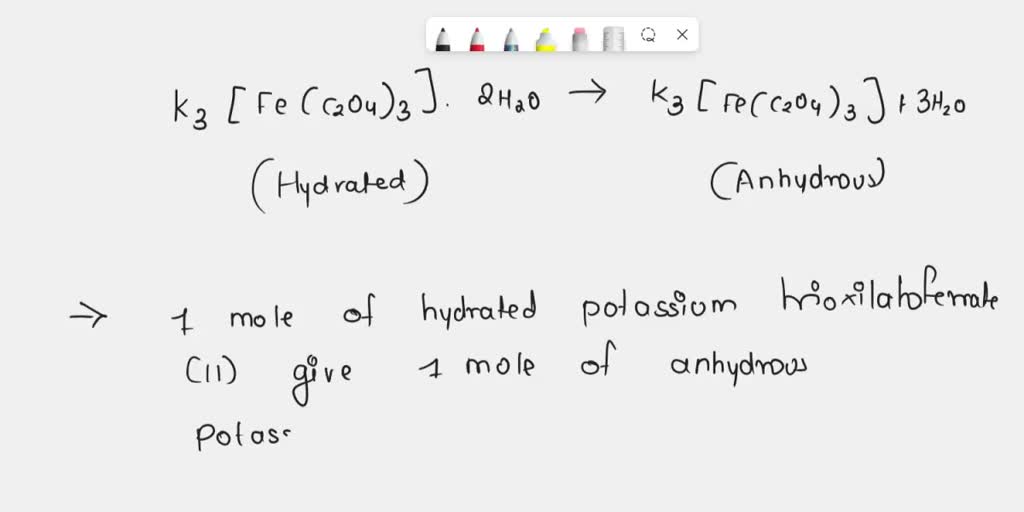 K3 [Fe(C2O4)3]. 2H2O → K3 [Fe(C2O4)3] + 3H2O
(Hydrated) (Anhydrous)
⇒ 1 mole of hydrated potassium trioxilatoferrate
(II) give 1 mole of anhydrous
Potas